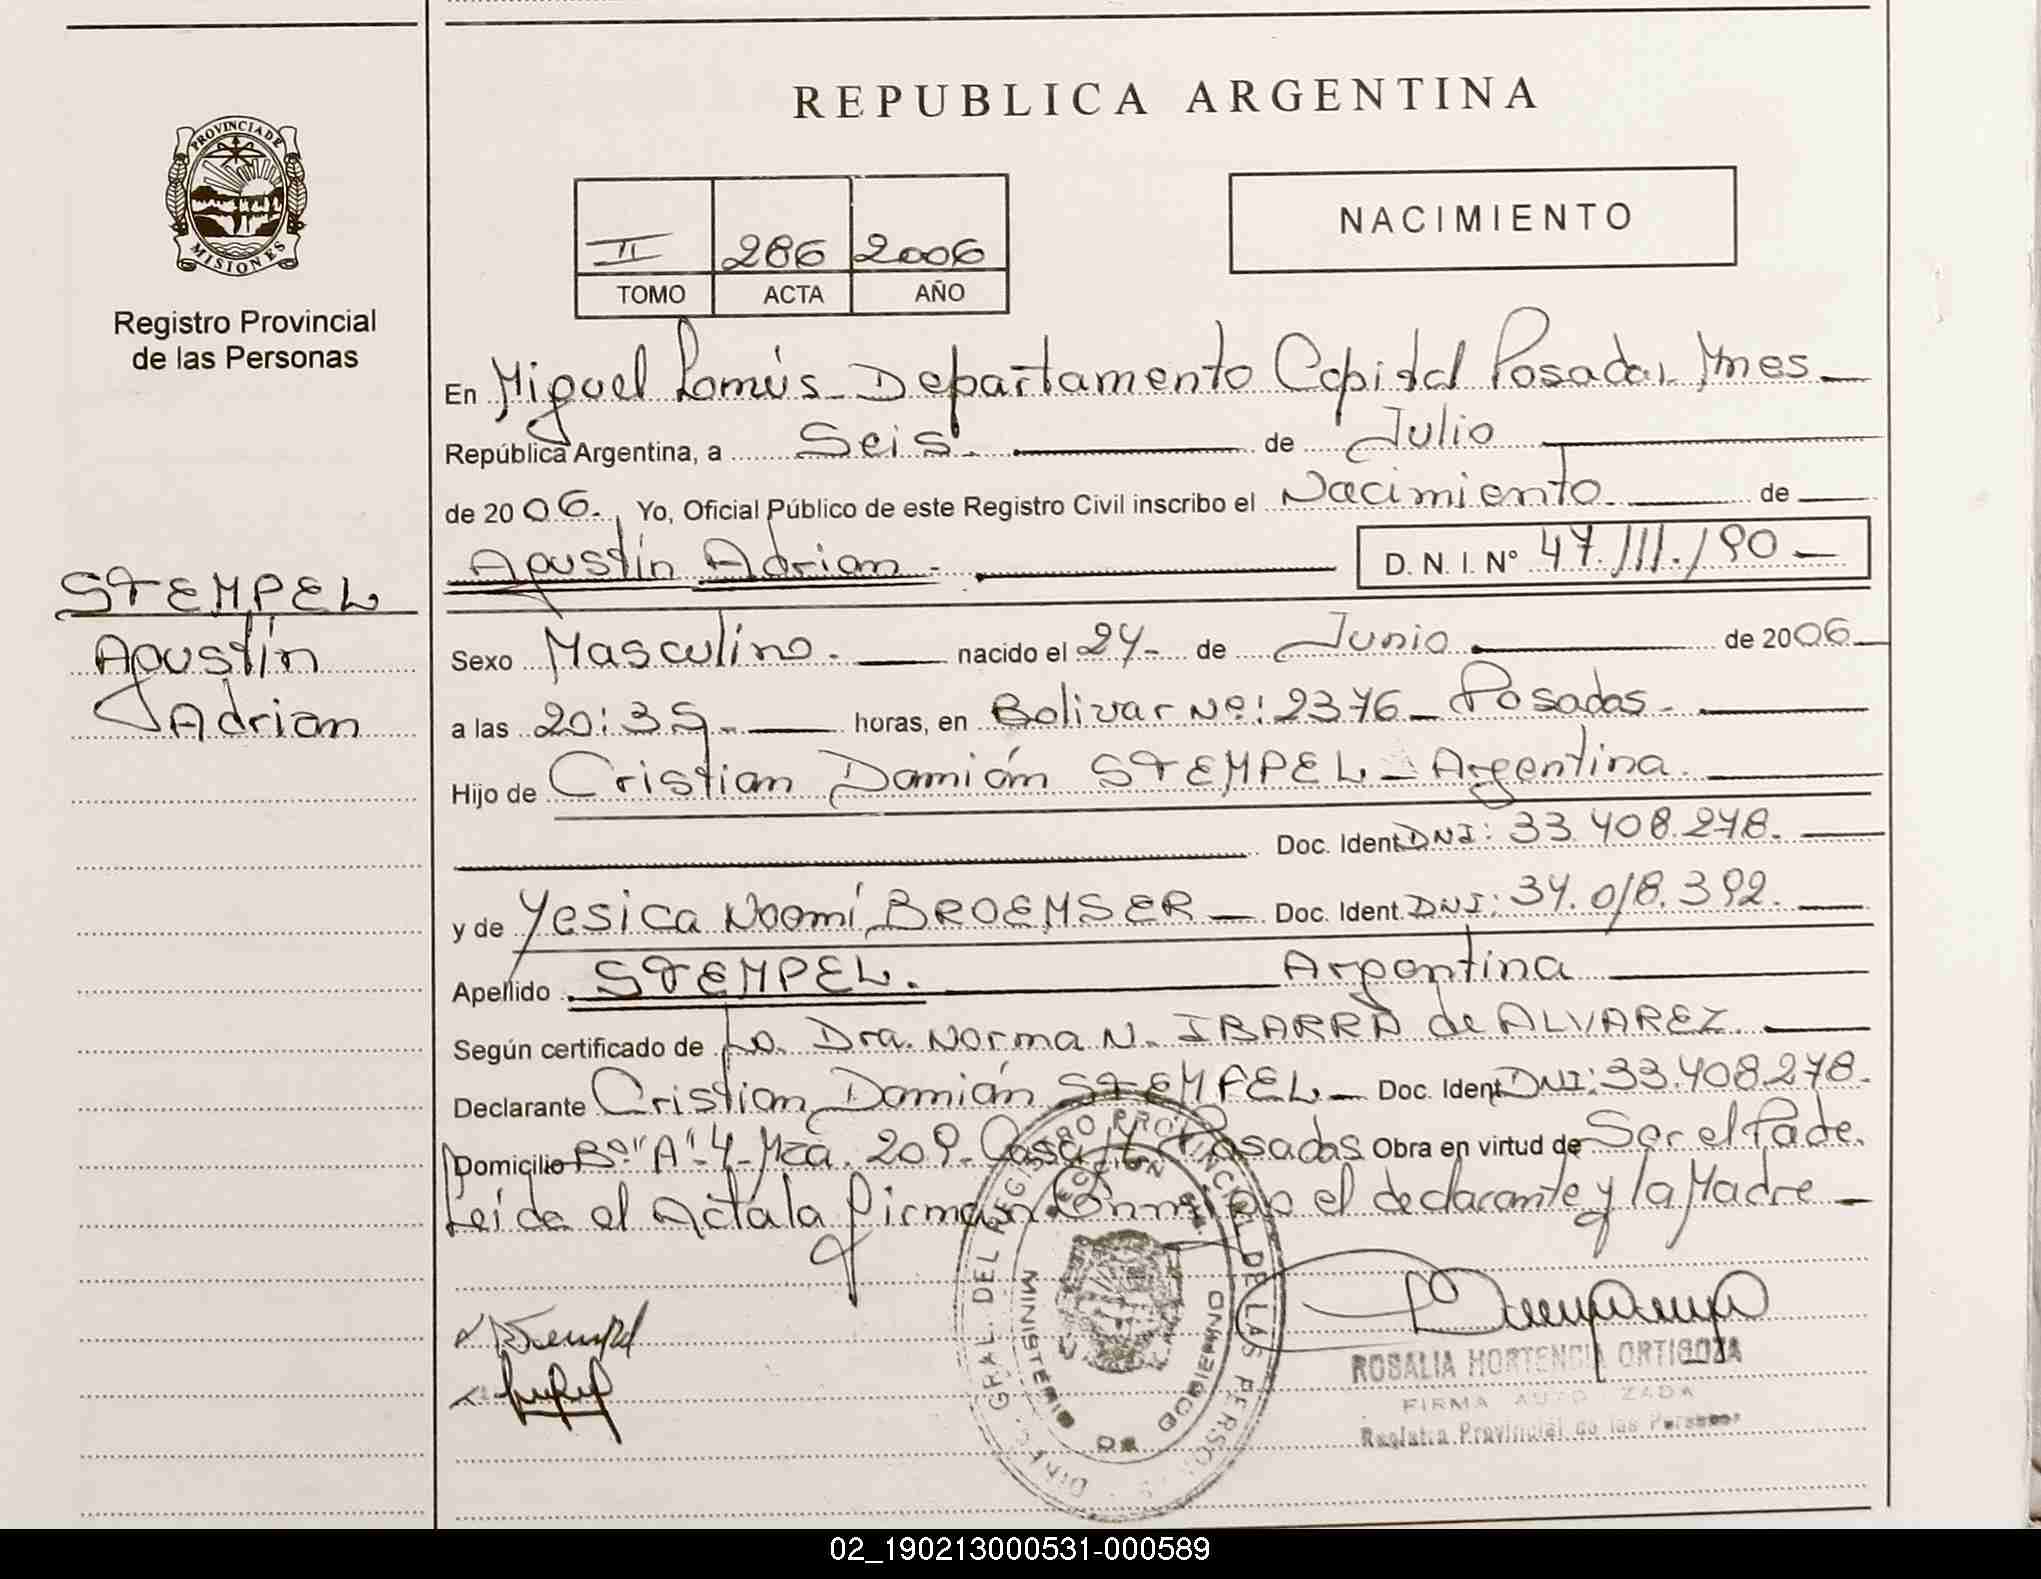 REPUBLICA ARGENTINA
PROVINCIA DE
MISIONES
Registro Provincial
de las Personas
NACIMIENTO
II 286 2006
TOMO ACTA AÑO
En Miguel Lanús - Departamento Capital Posadas, Mnes
República Argentina, a Seis. de Julio
de 2006. Yo, Oficial Público de este Registro Civil inscribo el Nacimiento de
Agustín Adrian - D. N. I. N° 47.111.190
STEMPEL
Agustín
Adrian
Sexo Masculino. nacido el 24 de Junio de 2006
a las 20:35 horas, en Bolivar Nº: 2376 - Posadas -
Hijo de Cristian Damián STEMPEL - Argentina
Doc. Ident DNI: 33.408.278.
y de Yesica Noemí BROEMSER Doc. Ident. DNI: 34.018.392.
Apellido STEMPEL. Argentina
Según certificado de La Dra. Norma N. IBARRA de ALVAREZ
Declarante Cristian Damián STEMPEL - Doc. Ident DNI: 33.408.278.
Domicilio Bº "A"-4-Mza. 209-Casa Posadas Obra en virtud de Ser el Padre.
Leída el Acta la firman Conmigo el declarante y la Madre
DIREC. GRAL. DEL REGISTRO PROVINCIAL DE LAS PERSONAS
MINISTERIO DE GOBIERNO
ROSALIA HORTENCIA ORTIGOZA
FIRMA AUTORIZADA
Registro Provincial de las Personas
02_190213000531-000589